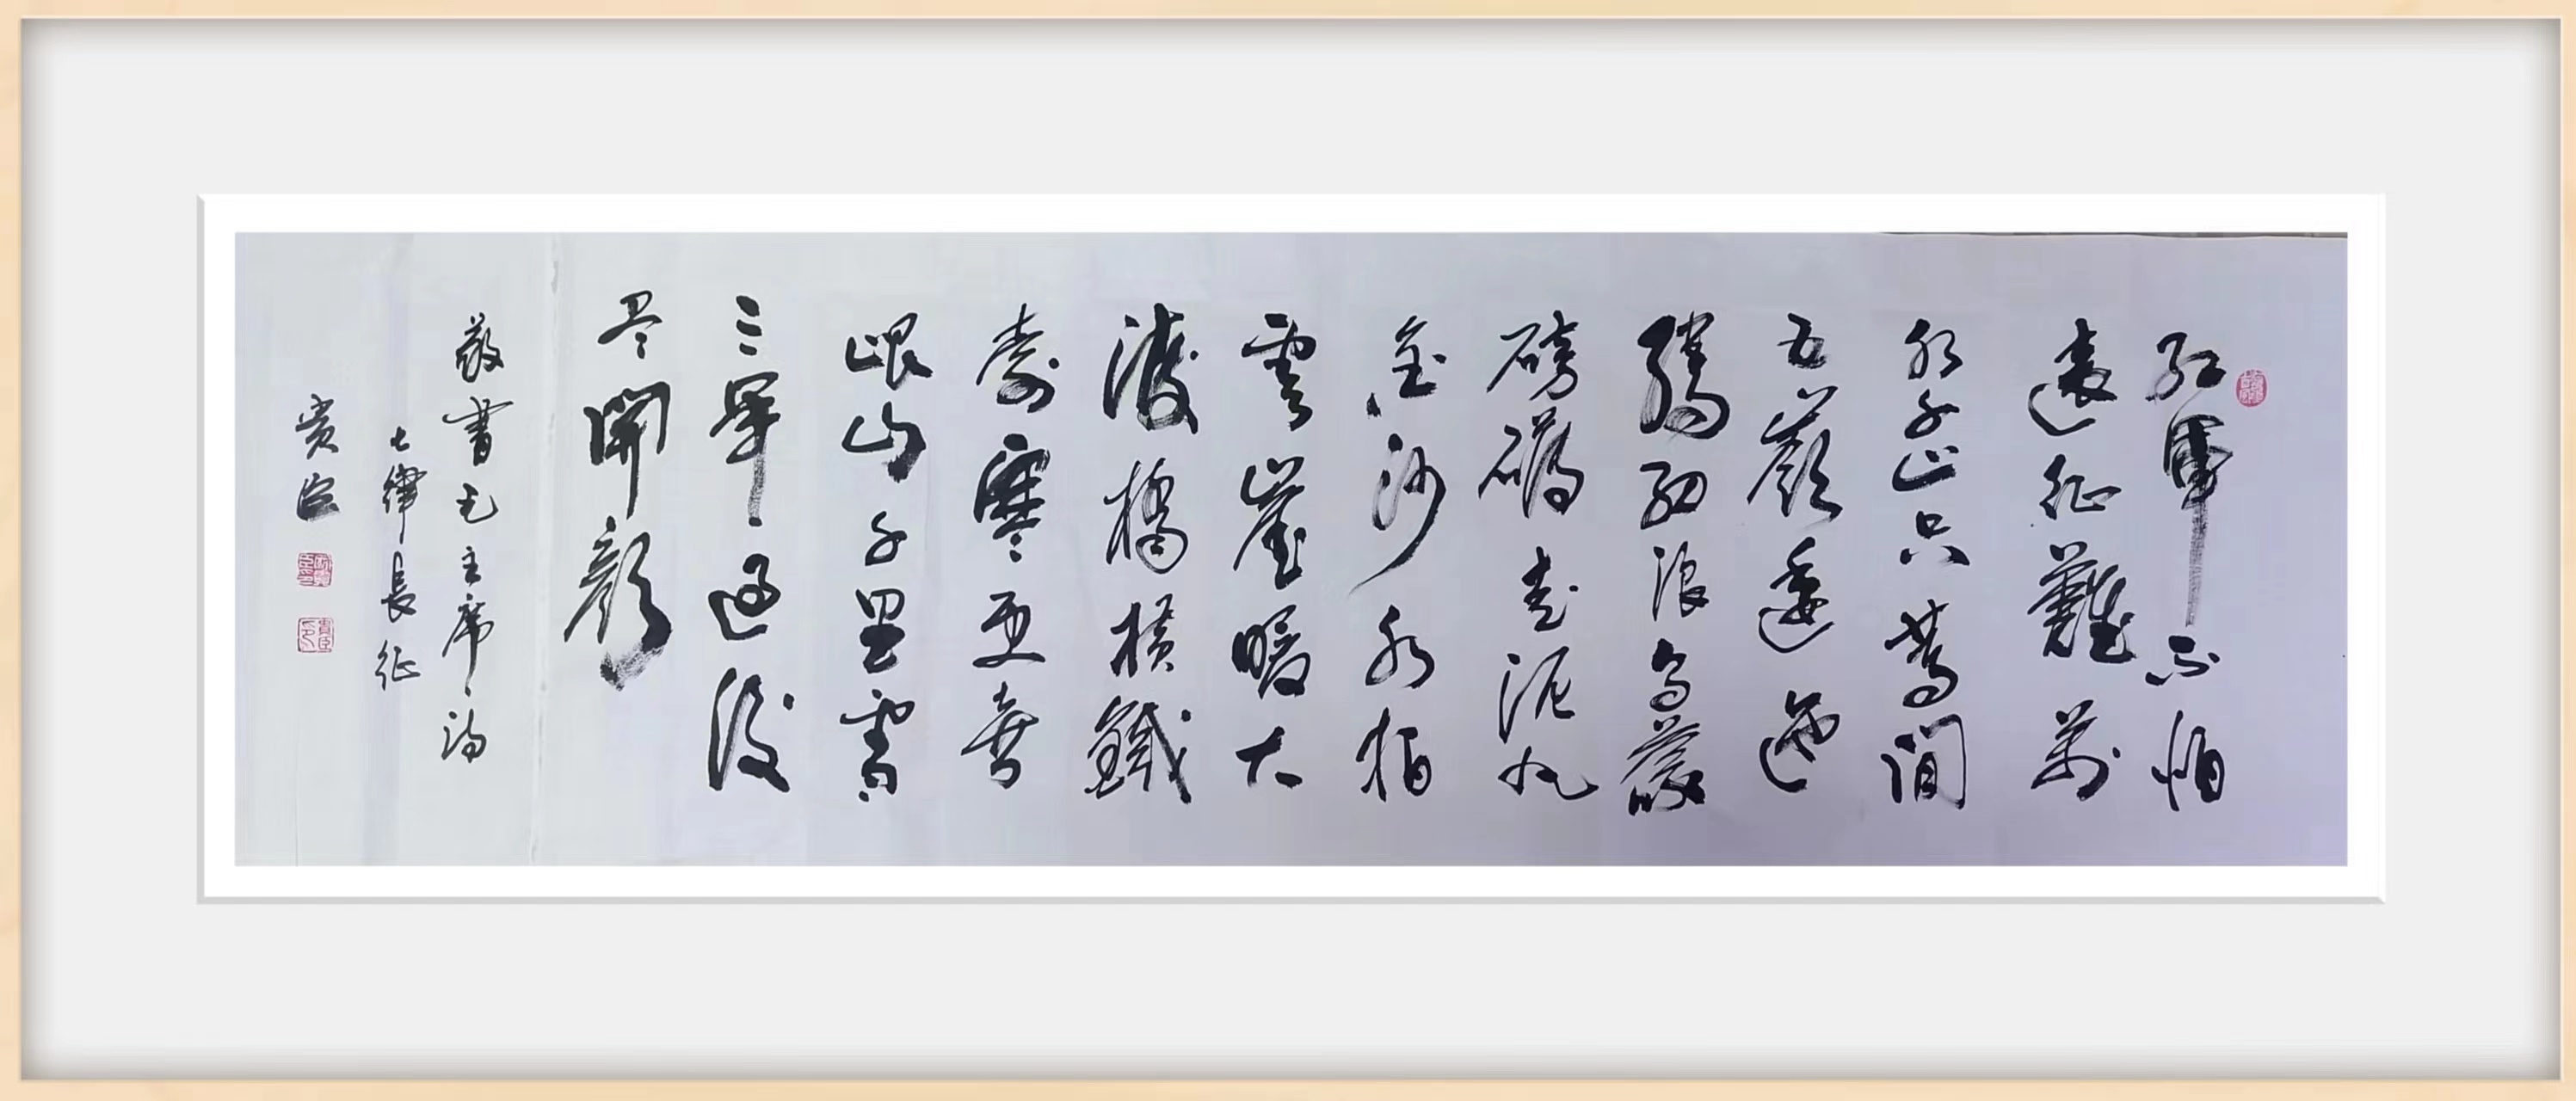 红軍不怕
遠征難萬
水千山只等閒
五嶺逶迤
騰細浪烏蒙
磅礴走泥丸
金沙水拍
雲崖暖大
渡橋橫鐵
索寒更喜
岷山千里雪
三軍過後
尽開顏
敬書毛主席詩
七律長征
贵臣